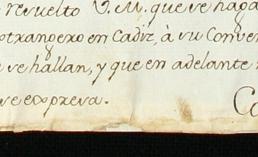 resuelto V.M. que se haga
otrangero en Cadiz, à su Conven
e se hallan, y que en adelante
se expresa.